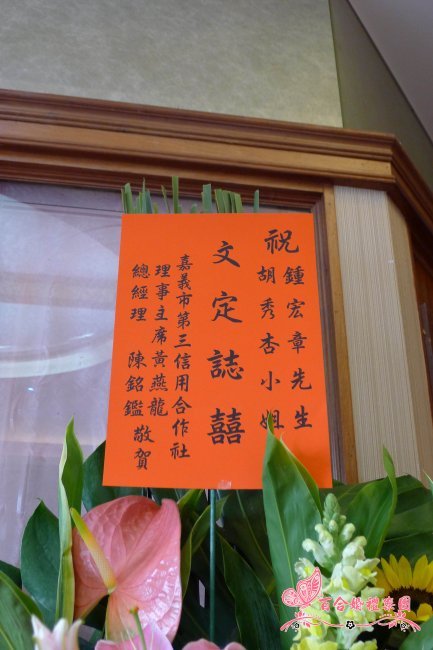 祝
鍾宏章先生
胡秀杏小姐
文定誌囍
嘉義市第三信用合作社
理事主席黃燕龍
總經理 陳銘鑑 敬賀
百合婚禮樂團